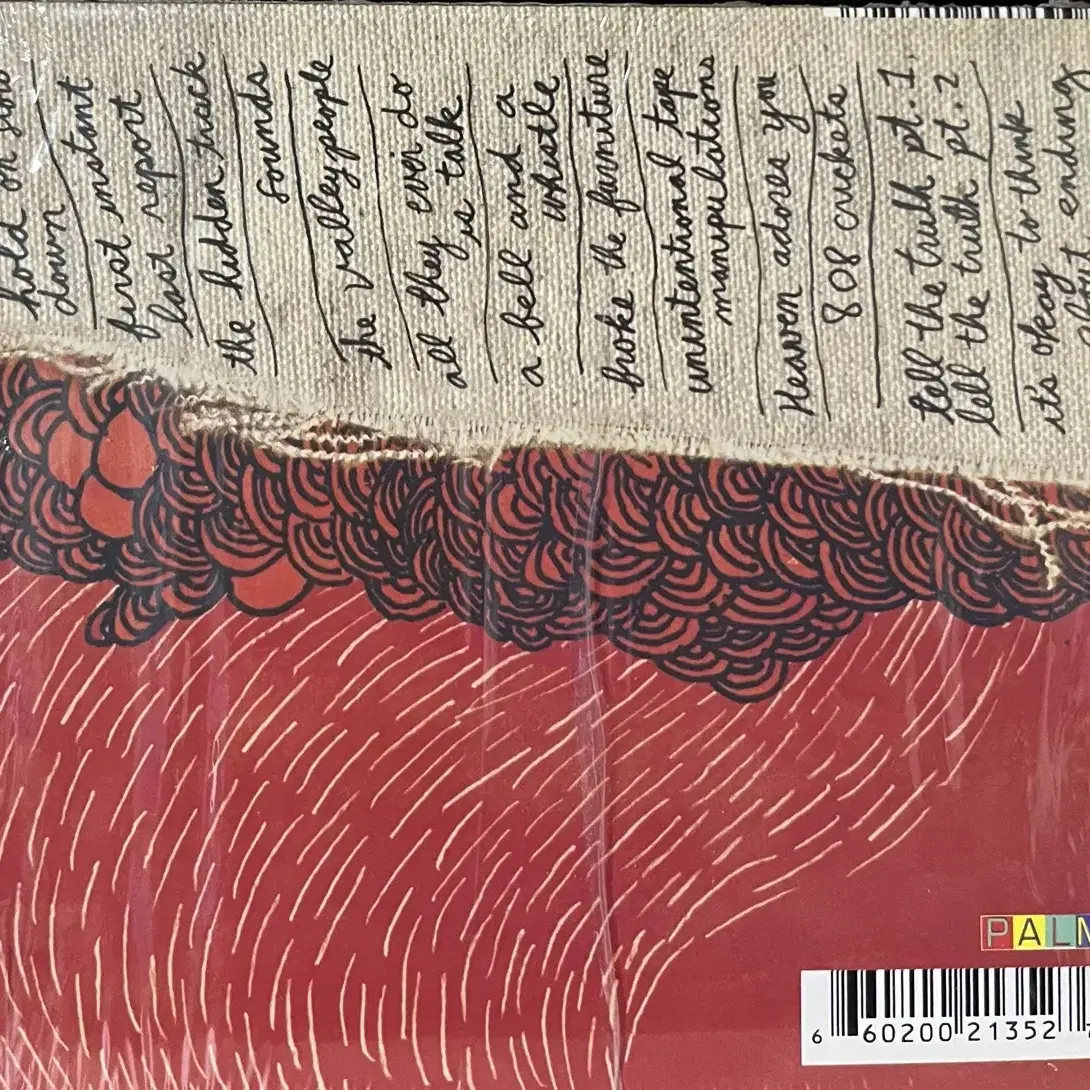 hold on slow
down
first instant
last report
the hidden track
sounds
the valleypeople
all they ever do
is talk
a bell and a
whistle
broke the furniture
unintentional tape
manipulations
Heaven adores you
808 crickets
tell the truth pt. 1.
tell the truth pt. 2
it's okay to think
about ending
PALM
6 60200 21352